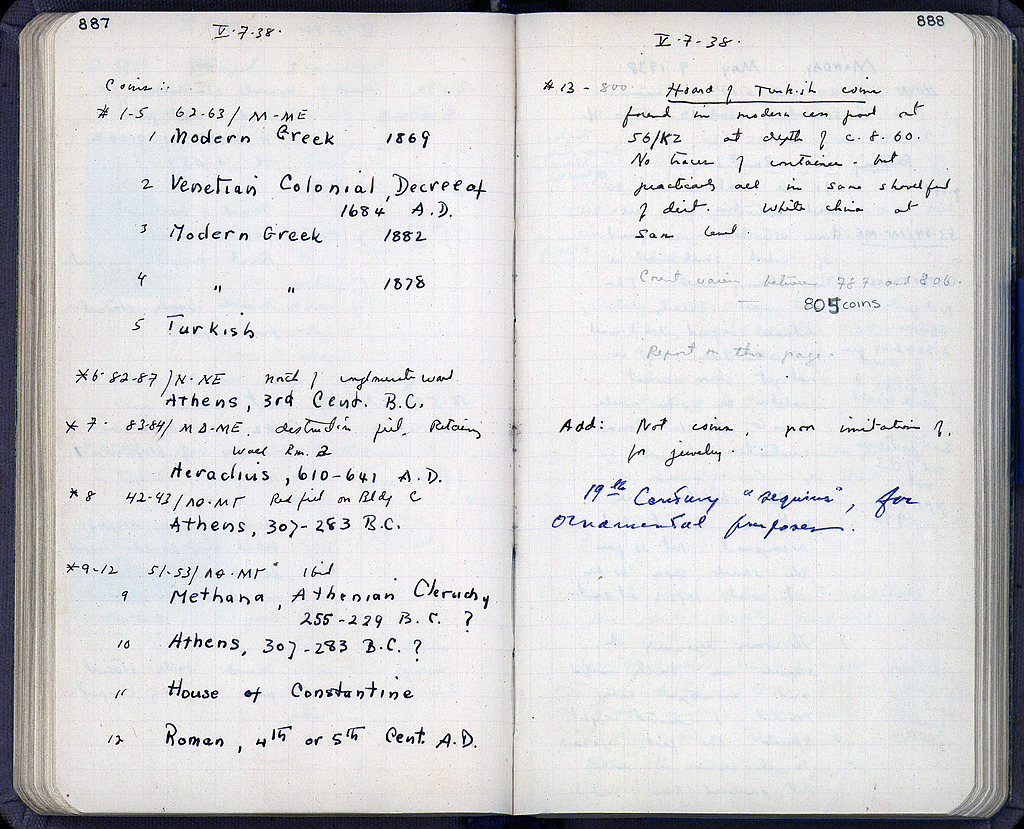 887
V·7·38·
Coins:
# 1-5 62-63/M-ME
1 Modern Greek 1869
2 Venetian Colonial, Decree of
1684 A.D.
3 Modern Greek 1882
4 " " 1878
5 Turkish
*6· 82-87/N·NE north of conglomerate wall
Athens, 3rd Cent. B.C.
*7· 83-84/MΔ-ME destruction fill Retaining
Wall Rm. 2
Heraclius, 610-641 A.D.
*8 42-43/ΛΘ·MΓ Red fill on Bldg C
Athens, 307-283 B.C.
*9-12 51-53/ΛΘ·MΓ Ibid
9 Methana, Athenian Cleruchy
255-229 B.C. ?
10 Athens, 307-283 B.C. ?
11 House of Constantine
12 Roman, 4th or 5th Cent. A.D.
888
V·7·38·
#13 - 800 Hoard of Turkish coins
found in modern cess pool at
56/KZ at depth of c. 8.60.
No traces of container but
practically all in same shovelful
of dirt. White china at
same level.
Count varies between 787 and 806.
805 coins
Report on this page.
Add: Not coins, poor imitation of,
for jewelry.
19th Century "sequins", for
ornamental purposes.